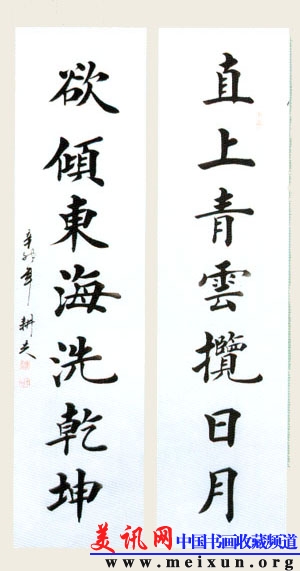 直上青雲攬日月
欲傾東海洗乾坤
辛卯年 耕夫
美讯网 中国书画收藏频道
www.meixun.org